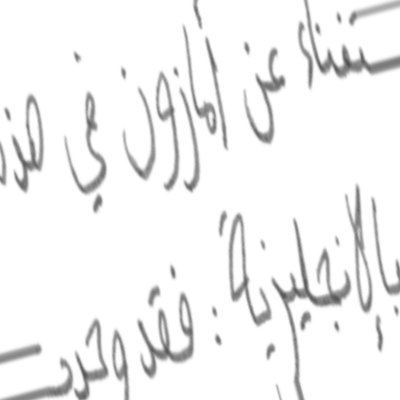 ستغناء عن أمازون في هذ
بالإنجليزية: فقد وجدت